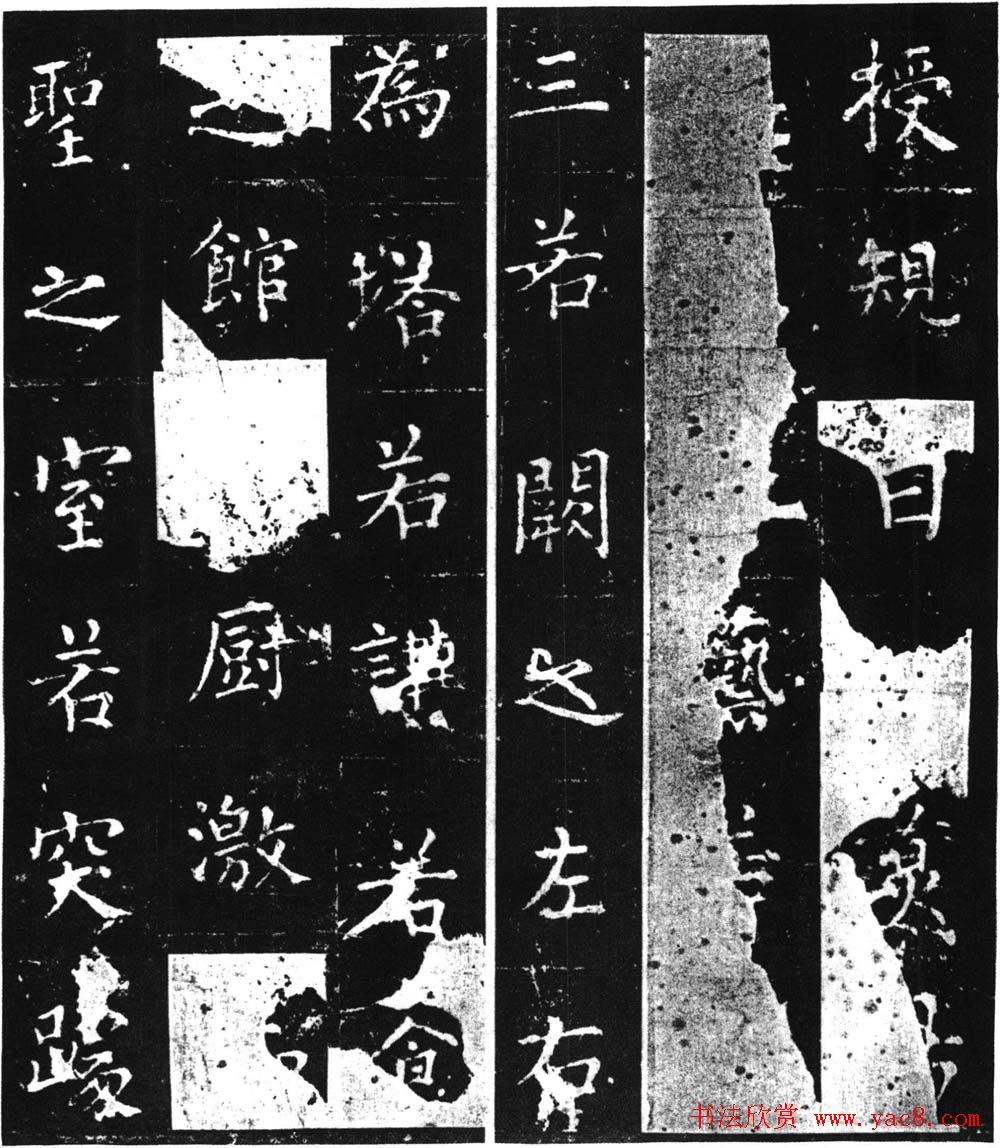 授規
藝
三若闕之左右
為塔若講若
之館厨激
聖之室若突踴
书法欣赏 www.yac8.com